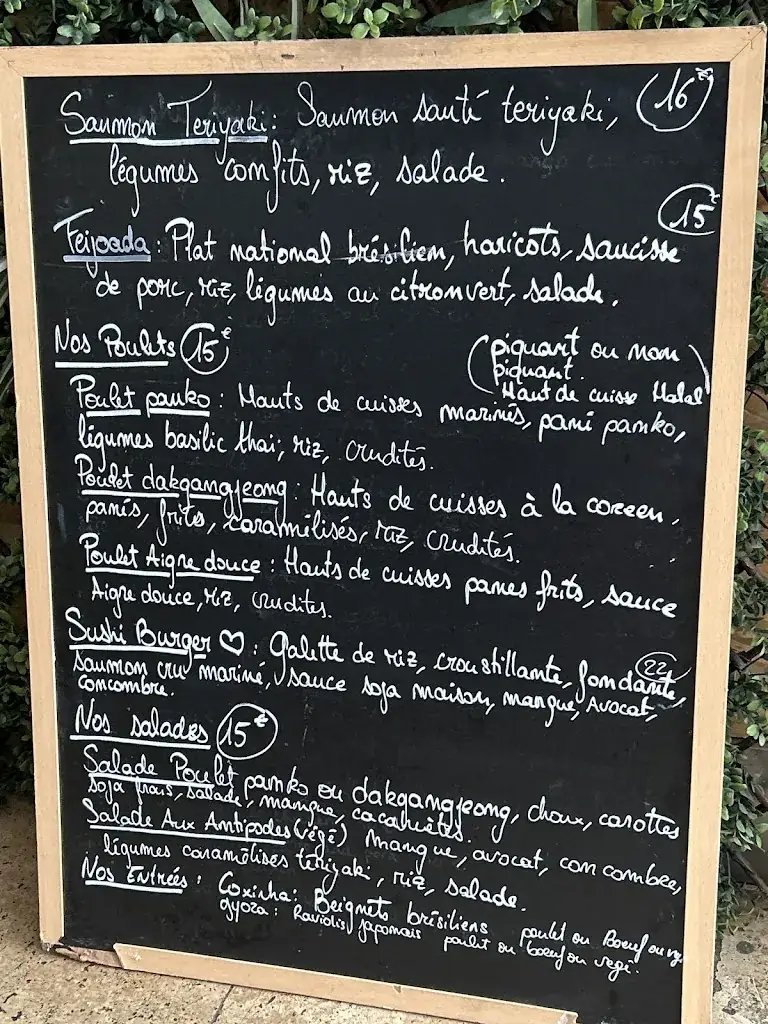 Saumon Teriyaki: Saumon sauté teriyaki, 16€
légumes confits, riz, salade.
15€
Feijoada: Plat national brésilien, haricots, saucisse
de porc, riz, légumes au citron vert, salade.
Nos Poulets 15€
(piquant ou non
piquant.
Haut de cuisse Halal)
Poulet panko: Hauts de cuisses marinés, pané panko,
légumes basilic thai, riz, crudités.
Poulet dakgangjeong: Hauts de cuisses à la coréen,
panés, frits, caramélisés, riz, crudités.
Poulet Aigre douce: Hauts de cuisses panes frits, sauce
Aigre douce, riz, crudites.
Sushi Burger ♡: galette de riz, croustillante, fondante, 22
saumon cru mariné, sauce soja maison, mangue, Avocat,
concombre.
Nos salades 15€
Salade Poulet panko ou dakgangjeong, choux, carottes
soja frais, salade, mangue, cacahuètes.
Salade Aux Antipodes (végé) Mangue, avocat, concombre,
légumes caramélises teriyaki, riz, salade.
Nos Entrées: Coxinha: Beignets brésiliens poulet ou Boeuf ou
gyoza: Raviolis japonais poulet ou boeuf ou vegé.